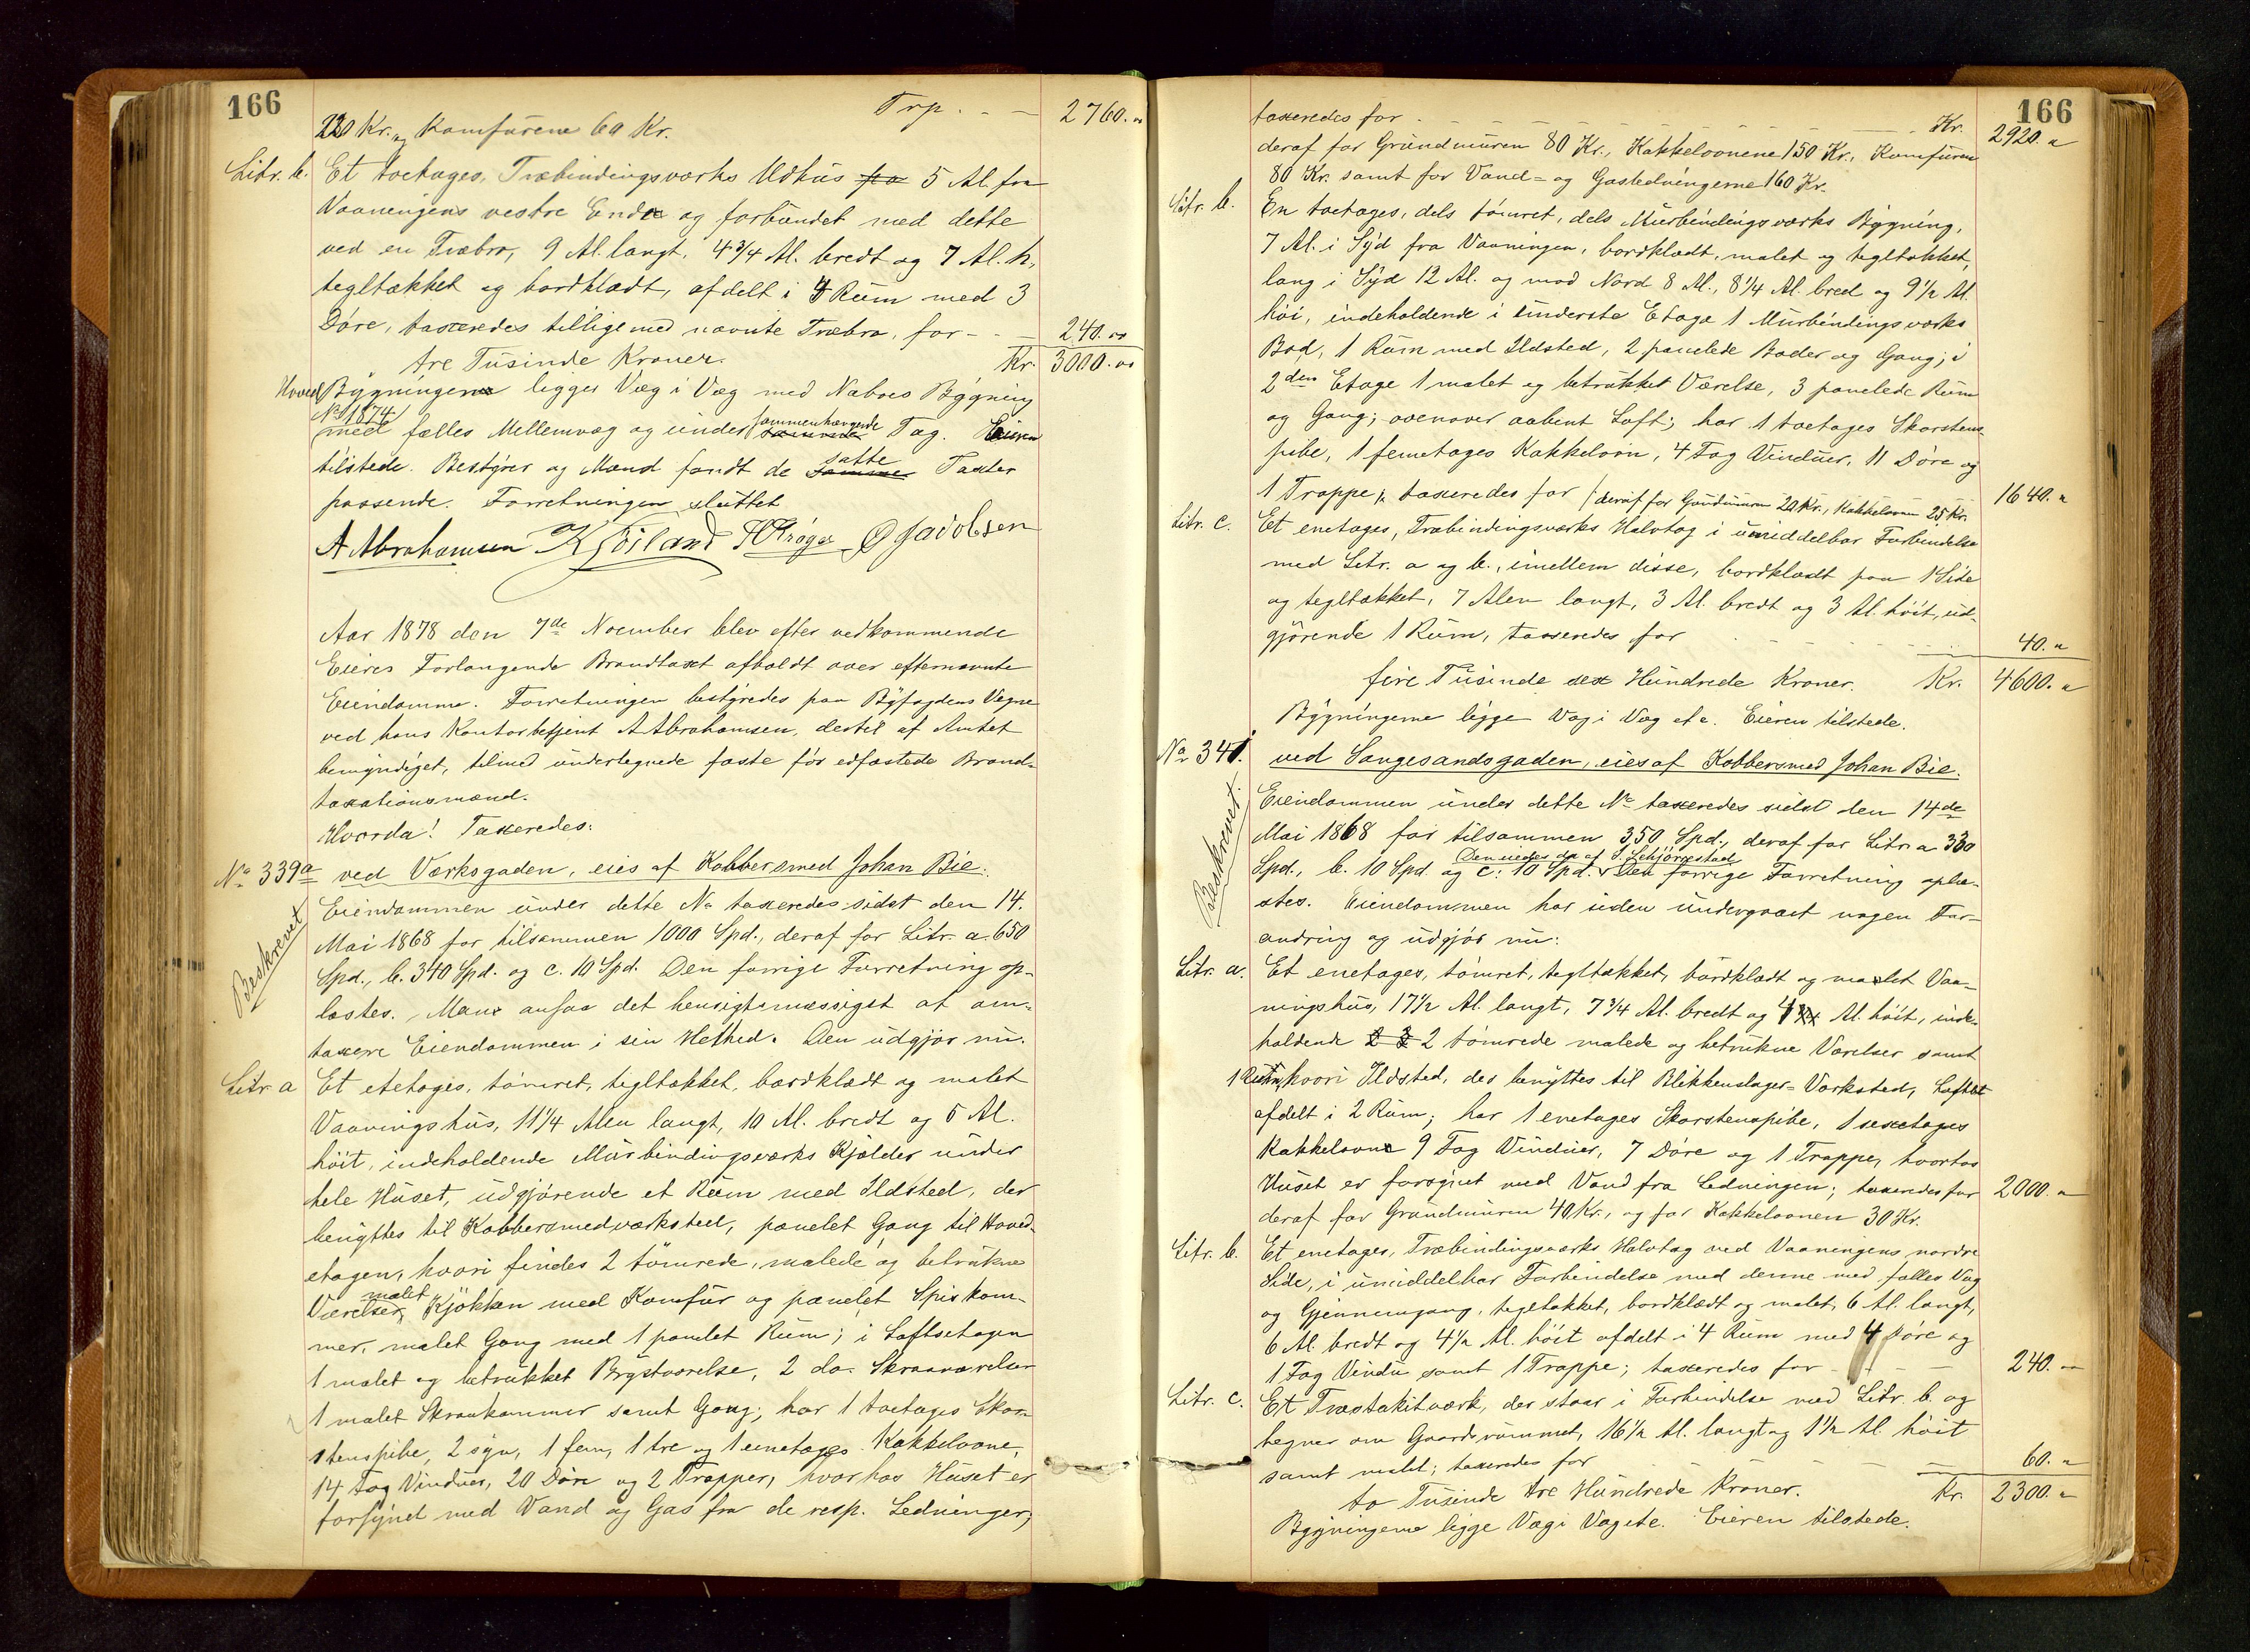 166
Trp. - - 2760.00
220 Kr. og Komfurene 60 Kr.
Litr. b. Et toetages, Træbindingsværks Udhus pa 5 Al. fra
Vaaningens vestre Ende og forbundet med dette
ved en Træbro, 9 Al. langt, 4 3/4 Al. bredt og 7 Al. h,
tegltækket og bordklædt, afdelt i 4 Rum med 3
Døre, taxeredes tilligemed nævnte Træbro, for - - 240.00
tre Tusinde Kroner. Kr. 3000.00
Hoved Bygningerne ligger Væg i Væg med Naboes Bygning
No 1874
med fælles Mellemvæg og under sammenhængende Tag. Eieren
tilstede. Bestyrer og Mænd fandt de satte Taxter
passende. Forretningen sluttet
A Abrahamsen K Föiland H Kröger O Jacobsen
Aar 1878 den 7de Noember blev efter vedkommende
Eieres Forlangende Brandtaxt afholdt over efternævnte
Eiendomme. Forretningen bestyredes paa Byfogdens Vegne
ved hans Kontorbetjent A Abrahamsen, dertil af Amtet
bemyndiget, tilmed undertegnede faste før edfæstede Brand-
taxationsmænd.
Hvorda! Taxeredes:
No 339a ved Værksgaden, eies af Kobbersmed Johan Bie.
Beskrevet
Eiendommen under dette No taxeredes sidst den 14.
Mai 1868 for tilsammen 1000 Spd., deraf for Litr. a. 650
Spd., b. 340 Spd. og c. 10 Spd. Den forrige Forretning op-
læstes. Man ansaa det hensigtsmæssigst at om-
taxere Eiendommen i sin Helhed. Den udgjør nu.
Litr. a Et etetages, tømret, tegltækket, bordklædt og malet
Vaaningshus, 11 1/4 Alen langt, 10 Al. bredt og 5 Al.
høit, indeholdende Murbindingsværks Kjælder under
hele Huset, udgjørende et Rum med Ildsted, der
benyttes til Kobbersmedværksted, panelet Gang til Hoved-
etagen, hvori findes 2 tømrede, malede og betrukne
Værelser, malet Kjøkken med Komfur og panelet Spiskam-
mer, malet Gang med 1 panelet Rum; i Loftsetagen
1 malet og betrukket Brystværelse, 2 do. Skraaværelser
1 malet Skraakammer samt Gang; har 1 toetages Skor-
stenspibe, 2 syv, 1 fem, 1 tre og 1 eenetages Kakkelovne,
14 Fag Vinduer, 20 Døre og 2 Trapper, hvorhos Huset er
forsynet med Vand og Gas fra de resp. Ledninger,
166
taxeredes for - - - Kr. 2920.00
deraf for Grundmuren 80 Kr., Kakkelovnene 150 Kr., Komfuren
80 Kr. samt for Vand- og Gasledningerne 160 Kr.
Litr. b. En toetages, dels tømret, dels Murbindingsværks Bygning,
7 Al. i Syd fra Vaaningen, bordklædt, malet og tegltækket,
lang i Syd 12 Al. og mod Nord 8 Al., 8 1/4 Al. bred og 9 1/2 Al.
høi, indeholdende i underste Etage 1 Murbindingsværks
Bod, 1 Rum med Ildsted, 2 panelede Boder og Gang; i
2den Etage 1 malet og betrukket Værelse, 3 panelede Rum
og Gang; ovenover aabent Loft; har 1 toetages Skorstens-
pibe, 1 femetages Kakkelovn, 4 Fag Vinduer, 11 Døre og
1 Trappe; taxeredes for (deraf for Grundmuren 20 Kr., Kakkelovnen 25 Kr. 1640.00
Litr. c. Et enetages, Træbindingsværks Halvtag i umiddelbar Forbindelse
med Litr. a og b., imellem disse, bordklædt paa 1 Side
og tegltækket, 7 Alen langt, 3 Al. bredt og 3 Al. høit, ud-
gjørende 1 Rum, taxeredes for - - - 40.00
fire Tusinde sex Hundrede Kroner. Kr. 4600.00
Bygningerne ligge Væg i Væg etc. Eieren tilstede.
No 341. ved Langesandsgaden, eies af Kobbersmed Johan Bie.
Beskrevet
Eiendommen under dette No taxeredes sidst den 14de
Mai 1868 for tilsammen 350 Spd., deraf for Litr. a 330
Spd., b. 10 Spd. og c: 10 Spd. Den forrige Forretning oplæ-
stes. Eiendommen har siden undergaaet nogen For-
andring og udgjør nu:
Litr. a. Et enetages, tømret, tegltækket, bordklædt og malet Vaa-
ningshus, 17 1/2 Al. langt, 7 3/4 Al. bredt og 4 Al. høit, inde-
holdende 2 tømrede malede og betrukne Værelser samt
1 Rum, hvori Ildsted, der benyttes til Blikkenslager-Værksted, Loftet
afdelt i 2 Rum; har 1 enetages Skorstenspibe, 1 sexetages
Kakkelovn 9 Fag Vinduer, 7 Døre og 1 Trappe, hvorhos
Huset er forsynet med Vand fra Ledningen; taxeredes for 2000.00
deraf for Grundmuren 40 Kr., og for Kakkelovnen 30 Kr.
Litr. b. Et enetages, Træbindingsværks Halvtag ved Vaaningens nordre
Side, i umiddelbar Forbindelse med denne med fælles Væg
og Gjennemgang, tegltækket, bordklædt og malet, 6 Al. langt,
6 Al. bredt og 4 1/2 Al. høit afdelt i 4 Rum med 4 Døre og
1 Fag Vindu samt 1 Trappe; taxeredes for - - 240.00
Litr. c. Et Træstakitværk, der staar i Forbindelse med Litr. b. og
hegner om Gaardsrummet, 16 1/2 Al. langt og 1 1/2 Al. høit
samt malet; taxeredes for - - - 60.00
to Tusinde tre Hundrede Kroner. Kr. 2300.00
Bygningerne ligge Væg i Væg etc. Eieren tilstede.